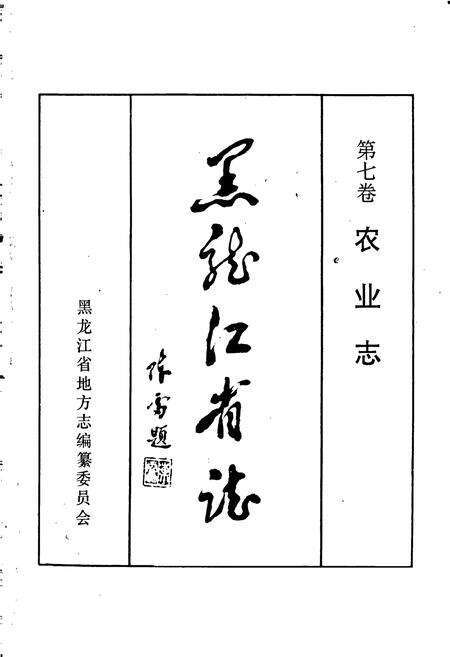 第七卷 农业志
黑龙江省志
陈雷题
黑龙江省地方志编纂委员会